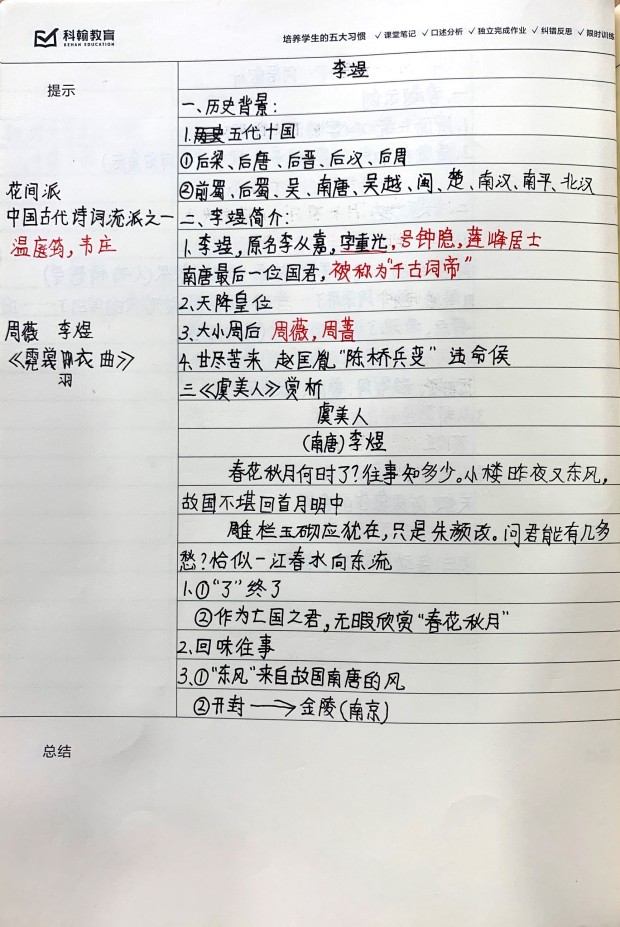 科翰教育
KEHAN EDUCATION
培养学生的五大习惯 ✓课堂笔记 ✓口述分析 ✓独立完成作业 ✓纠错反思 ✓限时训练
提示
李煜
一、历史背景:
1.五代十国
①后梁、后唐、后晋、后汉、后周
②前蜀、后蜀、吴、南唐、吴越、闽、楚、南汉、南平、北汉
花间派
中国古代诗词流派之一
温庭筠,韦庄
二、李煜简介:
1.李煜,原名李从嘉,字重光,号钟隐,莲峰居士
南唐最后一位国君,被称为"千古词帝"
2.天降皇位
周薇 李煜
《霓裳羽衣曲》
3.大小周后 周薇,周蔷
4.甘尽苦来 赵匡胤"陈桥兵变" 违命侯
三《虞美人》赏析
虞美人
(南唐)李煜
春花秋月何时了?往事知多少。小楼昨夜又东风,
故国不堪回首月明中
雕栏玉砌应犹在,只是朱颜改。问君能有几多
愁?恰似一江春水向东流
1.①"了"终了
②作为亡国之君,无暇欣赏"春花秋月"
2.回味往事
3.①"东风"来自故国南唐的风
②开封→金陵(南京)
总结